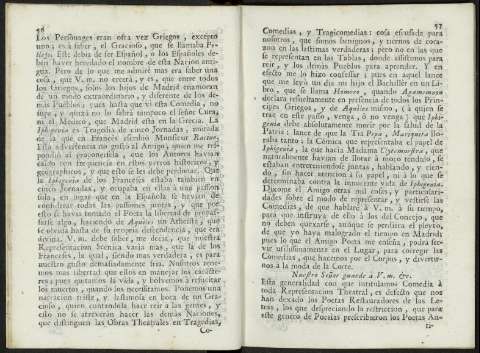 56
Los Personages eran otra vez Griegos, excepto
uno; es à saber, el Gracioso, que se llamaba
Este debia de ser Español, ò los Españoles de-
bian haver heredado el nombre de esta Nacion anti-
gua. Pero de lo que me admirè mas era saber una
cosa, que V. m. no creerà, y es, que entre todos
los Griegos, solos los hijos de Madrid enamoran
de un modo extraordinario, y diferente de los de-
màs Pueblos; pues hasta que vì esta Comedia, no
supe, y quizà no lo sabrà tampoco el señor Cura,
ni el Medico, que Madrid està en la Grecia. La
Iphigenia es Tragedia de cinco Jornadas, mirada
de la que en Francès escribiò Monsieur Racine.
Esta advertencia no gustò al Amigo, quien me res-
pondiò al
caido con frequencia en estos yerros historicos, y
geographicos, y que esto se les debe perdonar. Que
la Iphigenia de los Franceses estaba tambien en
cinco Jornadas, y ocupaba en ellas à una passion
sola, en lugar que en la Española se hervian de
nombrar todas las passiones juntas, y que por
esto se havia tomado el Poeta la libertad de
farse algo, haciendo de Aquiles un Atheista, que
se olvida hasta de su propria descendencia, que era
divina. V. m. debe saber, me decia, que nuestra
Representacion Iberica varia mas, que la de los
Franceses, la qual, siendo mas verdadera, es para
nuestro gusto acostumbrado fria. Nosotros tene-
mos mas libertad que ellos en manejar los caractè-
res; pues quitamos la vida, y bolvemos à resucitar
los muertos, quando los necesitamos. Ponemos una
narracion triste, y lastimosa en boca de un Gra-
cioso, quien contandola hace reir à las gentes, y
esto no se atreveràn hacer las demàs Naciones,
que distinguen las Obras Theatrales en Tragedias,
Co-
57
Comedias, y Tragicomedias: cosa escusada para
nosotros, que somos benignos, y tiernos de cora-
zon en las lastimas verdaderas; pero no en las que
se representan en las Tablas, donde assistimos para
reir, y los demàs Pueblos para aprender. Y en
efecto me lo hizo confessar; pues en aquel lance
que me leyò un dia mi hijo el Bachillèr en un Li-
bro, que se llama Homero, quando Agamemnon
declara resueltamente en presencia de todos los Prin-
cipes Griegos, y de Aquiles mismo, (à quien se
trae en este passo, venga, ò no venga) que Iphi-
genia debe absolutamente morir por la salud de la
Patria: lance de que la Tia Pepa, Mariquita llo-
raba tanto; la Còmica que representaba el papel de
Iphigenia, la que hacia Madama Clytemnestra, que
naturalmente havian de llorar à moco tendido, se
estaban entreteniendose juntas, hablando, y rien-
do, sin hacer atencion à su papel, ni à lo que se
determinaba contra la innocente vida de Iphigenia.
Dixome el Amigo otras mil cosas, y particulari-
dades sobre el modo de representar, y vestirse las
Comedias, de que hablarè à V. m. à su tiempo,
para que instruya de ello à los del Concejo, que
no deben quexarse, aunque se perdiera el pleyto,
de que yo haya malogrado el tiempo en Madrid;
pues lo que el Amigo Poeta me enseña, podrà ser-
vir utilissimamente en el Lugar, para corregir las
Comedias, que hacemos por el Corpus, y divertir-
nos à la moda de la Corte.
Nuestro Señor guarde à V. m. &c.
Esta generalidad con que intitulamos Comedia à
toda Representacion Theatral, es defecto que nos
han dexado los Poetas Restauradores de las Le-
tras, los que despreciando la restriccion, que para
este genero de Poesias prescribieron los Poetas An-
ti-